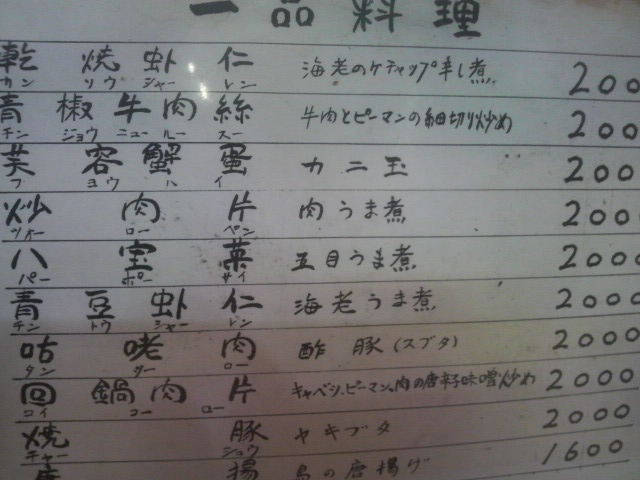 一品料理
乾焼虾仁 海老のケチャップ辛し煮 200
カン ソウ シャー レン
青椒牛肉絲 牛肉とピーマンの細切り炒め 200
チン ジョウ ニュー ルー スー
芙容蟹蛋 カニ玉 200
フ ヨウ ハ イ
炒肉片 肉うま煮 200
ツァオー ロー ペン
八宝菜 五目うま煮 2000
パー ポー サイ
青豆虾仁 海老うま煮 2000
チン トウ シャー レン
咕咾肉 酢豚(スブタ) 2000
タン リー ロー
回鍋肉片 キャベツ、ピーマン、肉の唐辛子味噌炒め 2000
コイ コー ロー
焼豚 ヤキブタ 2000
チャー シュウ
揚 鳥の唐揚げ 1600